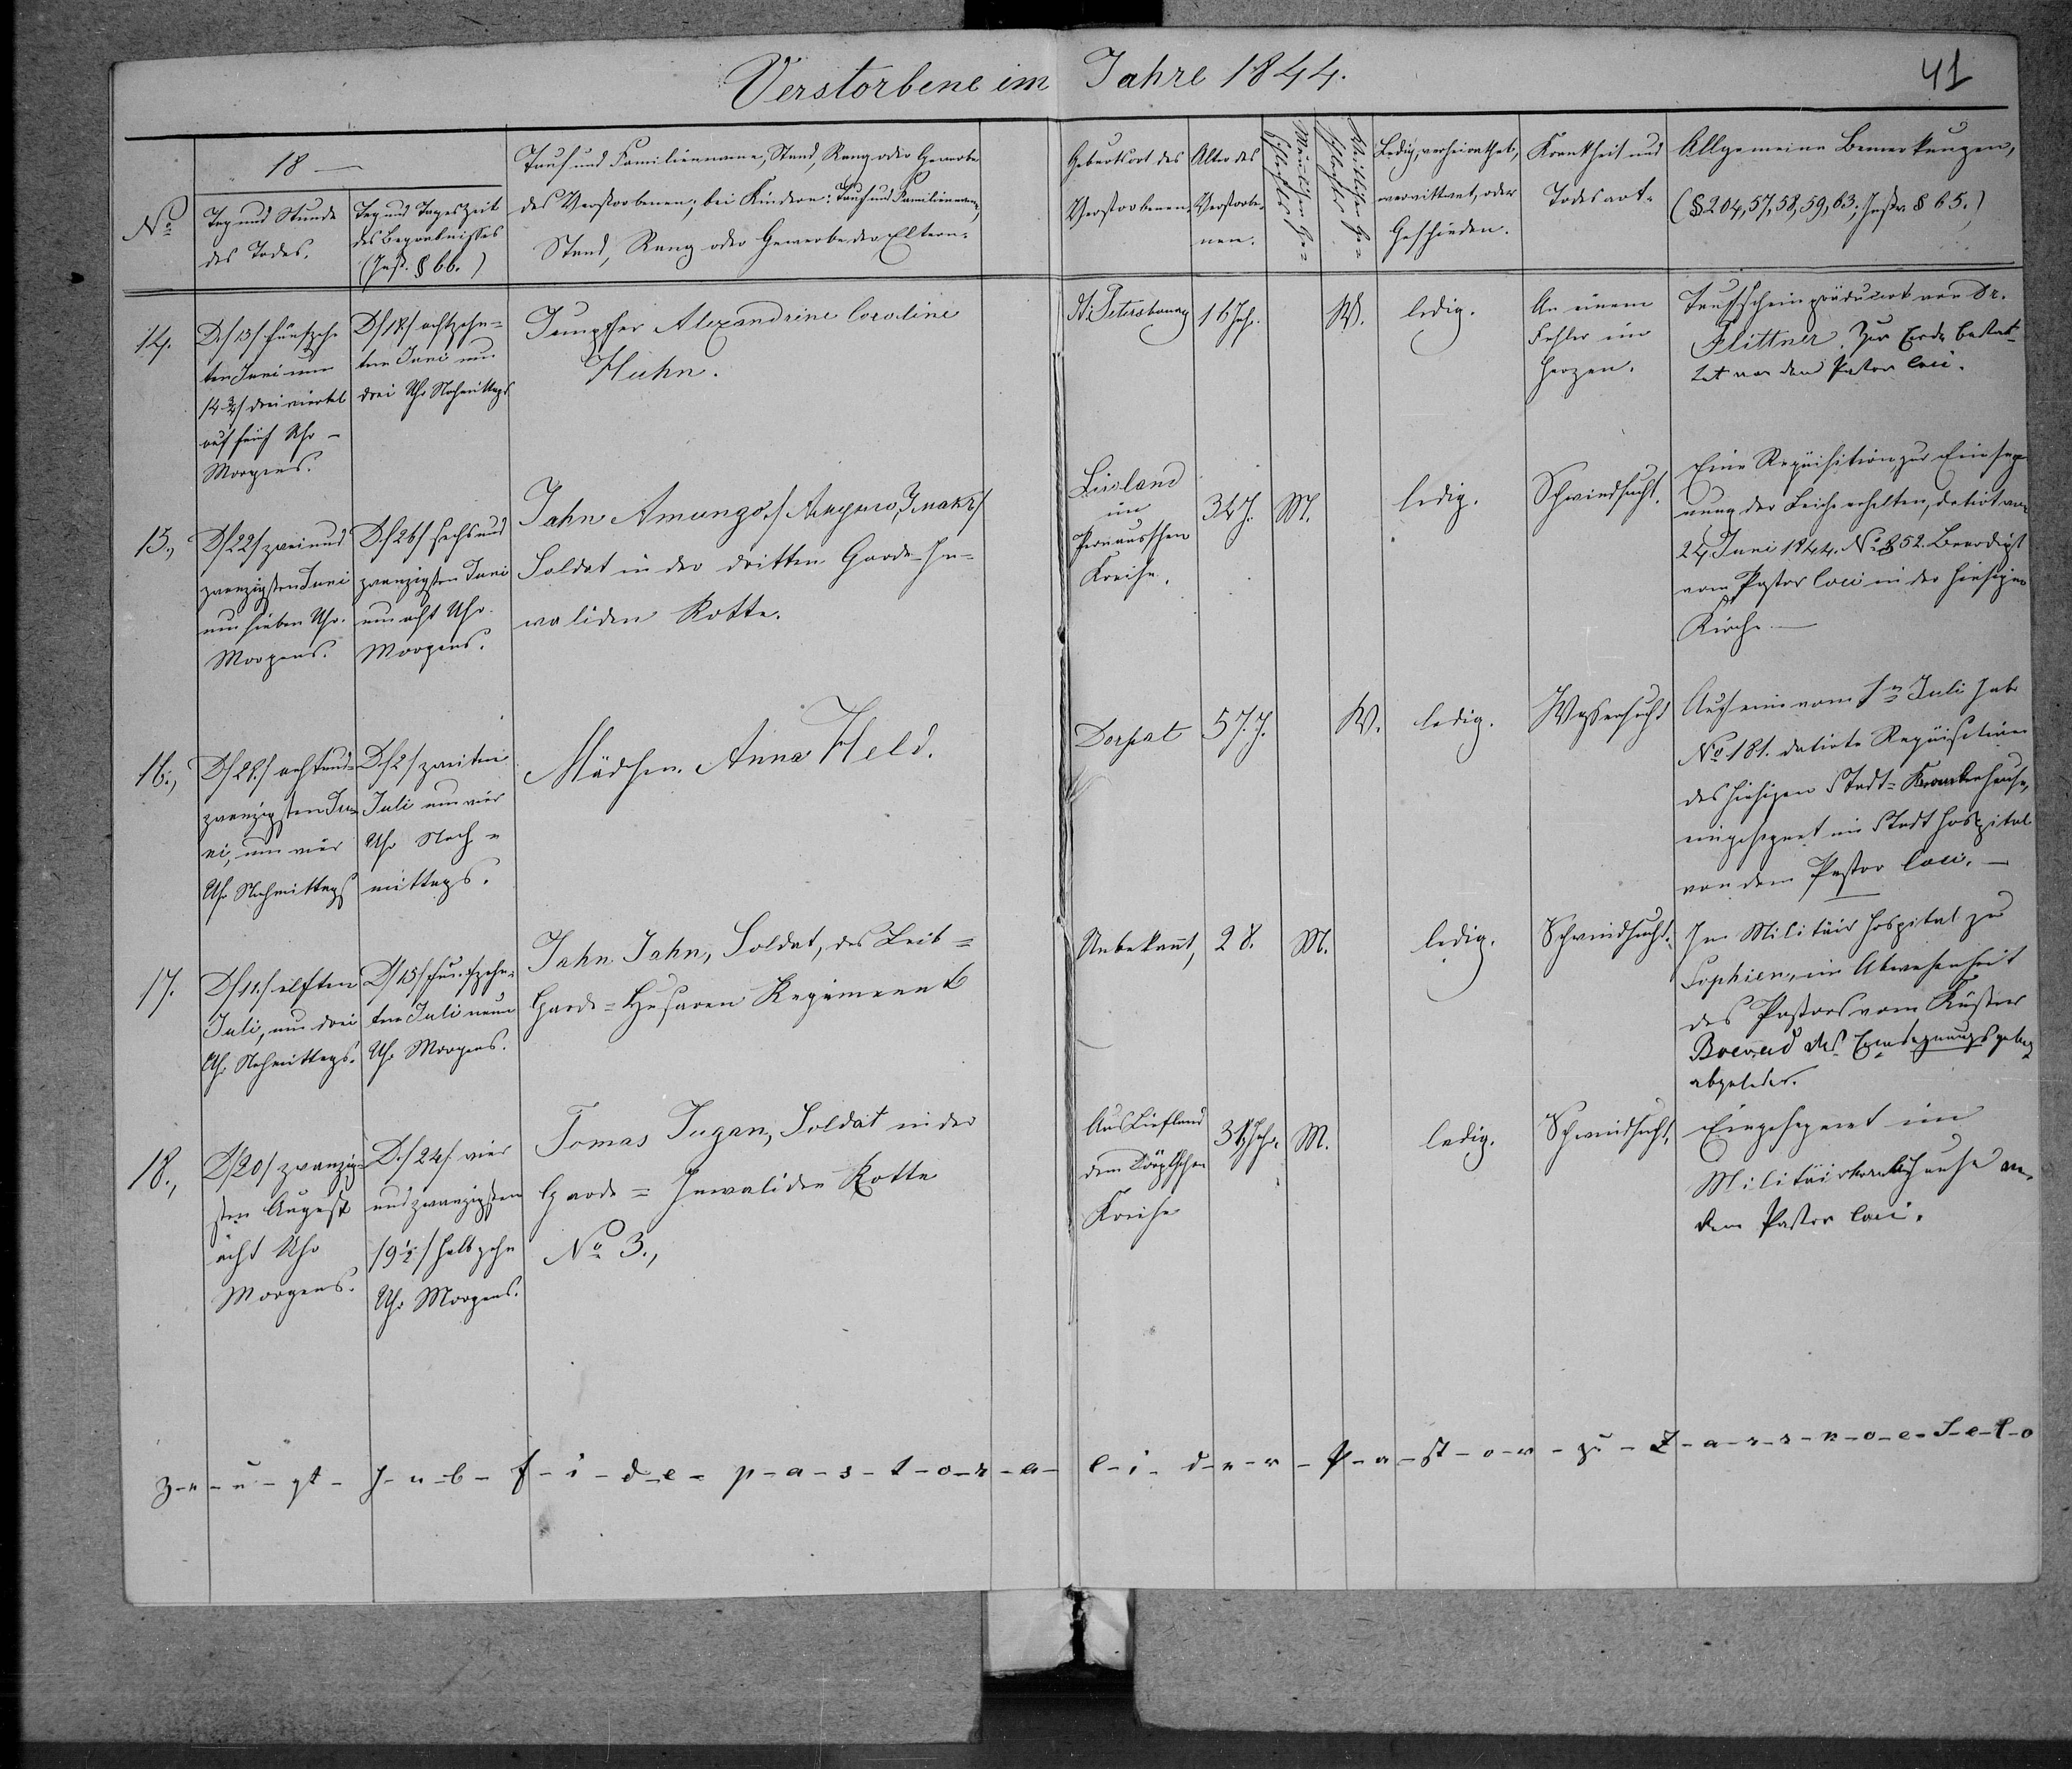 Verstorbene im Jahre 1844.
41
No
18 —
Tag und Stunde
des Todes.
Tag und Tageszeit
des Begräbnisses
(Inst. § 66.)
Tauf und Familienname, Stand, Rang oder Gewerbe
des Verstorbenen; bei Kindern: Tauf und Familienname,
Stand, Rang oder Gewerbe der Eltern.
Geburtsort des
Verstorbenen.
Alter des
Verstorbe-
nen.
Männlichen Ge=
schlechts
Weiblichen Ge=
schlechts
Ledig, verheirathet,
verwittwet, oder
Geschieden.
Krankheit und
Todesart.
Allgemeine Bemerkungen,
(§ 204, 57, 58, 59, 63; Instr. § 65.)
14.
D./15/ fünfzehn
ten Juni um
/4¾/ drei viertel
auf fünf Uhr –
Morgens.
D./18/ achtzehn=
ten Juni um
drei Uhr Nachmittags
Jungfer Alexandrine Caroline
Huhn.
St. Petersbourg
16 Jah.
W.
ledig.
An einem
Fehler im
Herzen.
Taufschein producirt von Dr.
Flittner. Zur Erde bestat=
tet von dem Pastor loci.
15.,
D/22/ zwei und
zwanzigsten Juni
um sieben Uhr.
Morgens.
D./26/ sechs und
zwanzigsten Juni
um acht Uhr.
Morgens.
Jahn Amungo
Soldat in der dritten Garde-In=
validen Rotte.
Livland
im
Pernauschen
Kreise.
34 J.
M.
ledig.
Schwindsucht.
Eine Requisition zur Einseg
nung der Leiche erhalten, datirt vom
24 Juni 1844. No 852. Beerdigt
vom Pastor loci in der hiesigen
Kirche. —
16.,
D/28./ acht und=
zwanzigsten Ju=
ni, um vier
Uhr Nachmittags
D/2/ zweiten
Juli um vier
Uhr Nach=
mittags.
Mädchen Anna Held.
Dorpat
57. J.
W.
ledig.
Wassersucht
Auf eine vom 1n Juli sub
No 181. datirte Requisition
des hiesigen Stadt=Krankenhauses,
eingesegnet im Stadthospital
von dem Pastor loci. —
17.
D/11./ elften
Juli, um drei
Uhr Nachmittags.
D/15/ fünfzehn=
ten Juli neun
Uhr Morgens.
Jahn Jahn, Soldat, des Leib=
Garde=Husaren Regiment
Unbekannt,
28.
M.
ledig.
Schwindsucht.
Im Militair Hospital zu
Sophien, in Abwesenheit
des Pastors vom Küster
das Einsegnungsgebet
18.,
D/20/ zwanzig=
sten August
acht Uhr
Morgens.
D./24/ vier
und zwanzigsten
/9½/ halb zehn
Uhr Morgens.
Tomas Jugan, Soldat in der
Garde=Invaliden Rotte
No 3.,
Aus Liefland
dem Dörptschen
Kreise
31 Jahr
M.
ledig.
Schwindsucht.
Eingesegnet im
Militairkrankenhause von
dem Pastor loci.
Z-e-u-gt- s-u-b- f-i-d-e- p-a-s-t-o-r-a- l-i- d-e-r- P-a-st-o-r- zu- Z-a-r-s-k-o-e-S-e-l-o